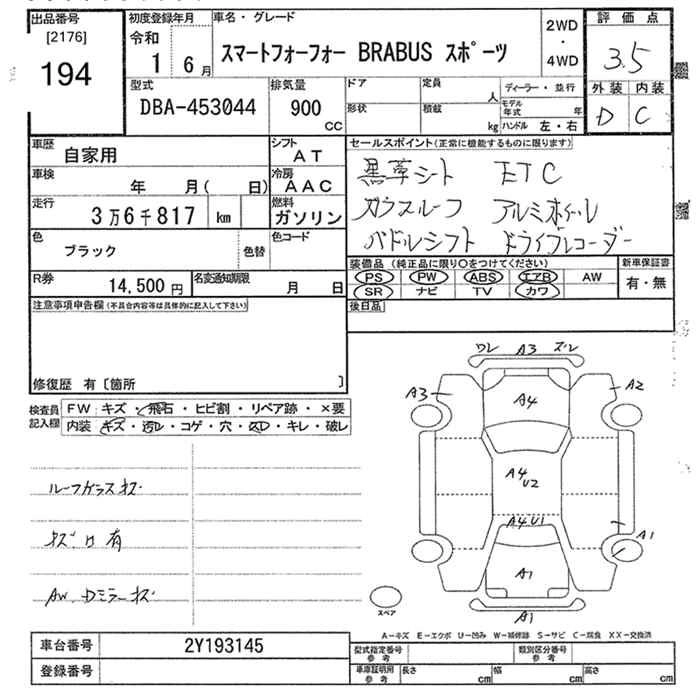 出品番号
[2176]
194
初度登録年月
令和
1 6月
車名・グレード
スマートフォーフォー BRABUS スポーツ
2WD
・
4WD
評価点
3.5
外装 内装
D C
型式
DBA-453044
排気量
900
CC
ドア
形状
定員
人
積載
kg
ディーラー・並行
モデル年式 年
ハンドル 左・右
車歴
自家用
シフト
AT
車検
年 月( 日)
冷房
AAC
走行
3万6千817 km
燃料
ガソリン
色
ブラック
色替
色コード
R券
14,500円
名変通知期限
月 日
セールスポイント(正常に機能するものに限ります)
黒革シート ETC
ガラスルーフ アルミホイール
パドルシフト ドライブレコーダー
装備品(純正品に限り○をつけてください)
PS PW ABS エアB AW
SR ナビ TV カワ
新車保証書
有・無
後日品
注意事項申告欄(不具合内容等は具体的に記入して下さい)
修復歴 有〔箇所 〕
検査員
記入欄
FW:キズ・飛石・ヒビ割・リペア跡・×要
内装:キズ・汚レ・コゲ・穴・久D・キレ・破レ
ルーフガラスキズ
キズ凹有
AW、Dミラーキズ
ワレ A3 ズレ
A3
A2
A4
A4
U2
A4U1
A1
A1
A1
スペア
A−キズ E−エクボ U−凹み W−補修跡 S−サビ C−腐食 XX−交換済
車台番号
2Y193145
登録番号
型式指定番号
参考
類別区分番号
参考
車庫証明用
参考
長さ cm
幅 cm
高さ cm